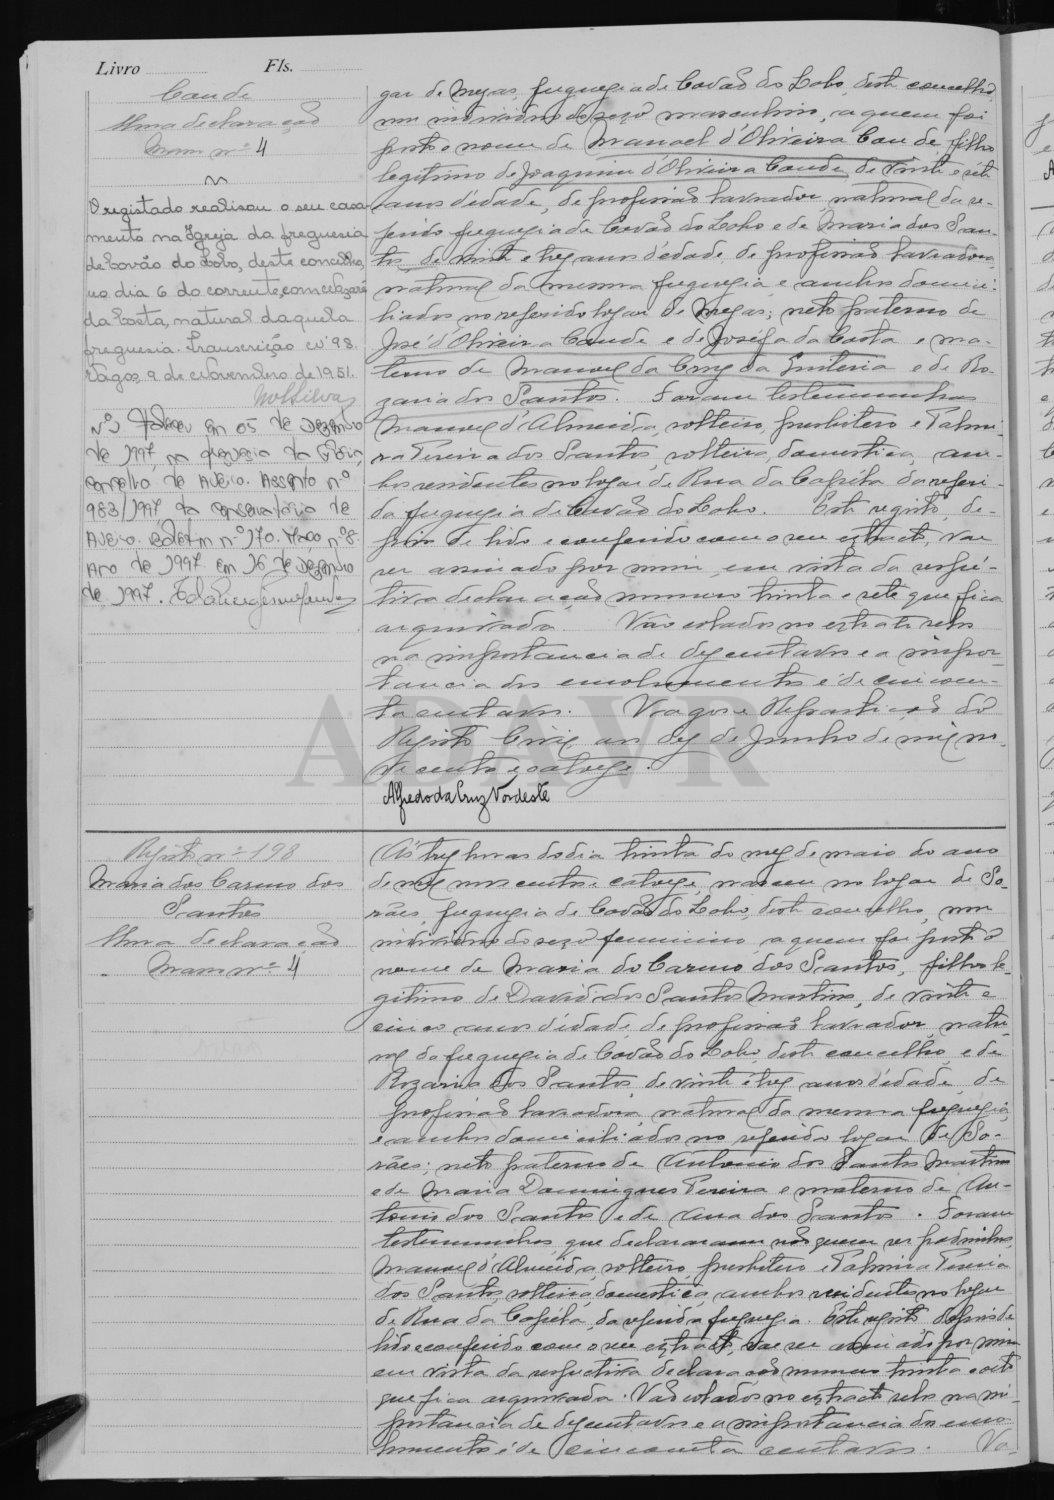 Livro Fls.
Caude
Uma declaração
Maço nº 4
O registado realisou o seu casa-
mento na Igreja da freguesia
de Covão do Lobo, deste concelho,
no dia 6 do corrente, com Cezaré
da Costa, natural daquela
freguesia. Transcrição nº 98.
Vagos, 9 de Novembro de 1951.
Nº2 Faleceu em 05 de Dezembro
de 1997, na freguesia da Glória,
concelho de Aveiro. Assento nº
983/1997 da conservatória de
Aveiro. Boletim nº 170. Maço nº 8.
Ano de 1997. Em 16 de Dezembro
de 1997.
gar de Mezas, freguezia de Covão do Lobo, deste concelho,
um individuo do sexo masculino, a quem foi
posto o nome de Manoel d'Oliveira Caude, filho
legitimo de Joaquim d'Oliveira Caude, de vinte e sete
anos d'edade, de profissão lavrador, natural da re-
ferida freguezia de Covão do Lobo e de Maria dos San-
tos, de vinte e trez anos d'edade, de profissão lavradora,
natural da mesma freguezia e ambos domici-
liados no referido logar de Mezas; neto paterno de
José d'Oliveira Caude e de Joséfa da Costa e ma-
terno de Manoel da Cruz da Quiteria e de Ro-
zaria dos Santos. Foram testemunhas
Manoel d'Almeida, solteiro, presbitero e Palmi-
ra Pereira dos Santos, solteira, domestica, am-
bos residentes no logar de Rua da Capéla da referi-
da freguezia de Covão do Lobo. Este registo, de-
pois de lido e conferido com o seu extracto, vae
ser assinado por mim, em vista da respé-
tiva declaração numero trinta e sete que fica
arquivada. Vão colados no extrato selos
na importancia de dez centavos e a impor-
tancia dos emolumentos é de cincoen-
ta centavos. Vagos e Repartição do
Registo Civil aos dez de Junho de mil no-
vecentos e catorze.
Alfredo da Cruz Nordeste
ADAVR
Registo nº 198
Maria dos Carmo dos
Santos
Uma declaração
Maço nº 4
Ás trez horas do dia trinta do mez de maio do ano
de mil novecentos e catorze, nasceu no logar de So-
rães, freguezia de Covão do Lobo, deste concelho, um
individuo do sexo feminino, a quem foi posto o
nome de Maria do Carmo dos Santos, filha le-
gitimo de David dos Santos Martins, de vinte e
cinco anos d'edade, de profissão lavrador, natu-
ral da freguezia de Covão do Lobo, deste concelho, e de
Rozaria dos Santos, de vinte e trez anos d'edade, de
profissão lavradora, natural da mesma freguezia,
e ambos domiciliados no referido logar de So-
rães; neto paterno de Antonio dos Santos Martins
e de Maria Domingues Pereira e materno de An-
tonio dos Santos e de Ana dos Santos. Foram
testemunhas, que declararam não querem ser padrinhos,
Manoel d'Almeida, solteiro, presbitero e Palmira Pereira
dos Santos, solteira, domestica, ambos residentes no logar
de Rua da Capéla, da referida freguezia. Este registo, depois de
lido e conferido com o seu extracto, vae ser assinado por mim
em vista da respectiva declaração numero trinta e oito
que fica arquivada. Vão colados no extracto selos na im-
portancia de dez centavos e a importancia dos emo-
lumentos é de cincoenta centavos. Va-